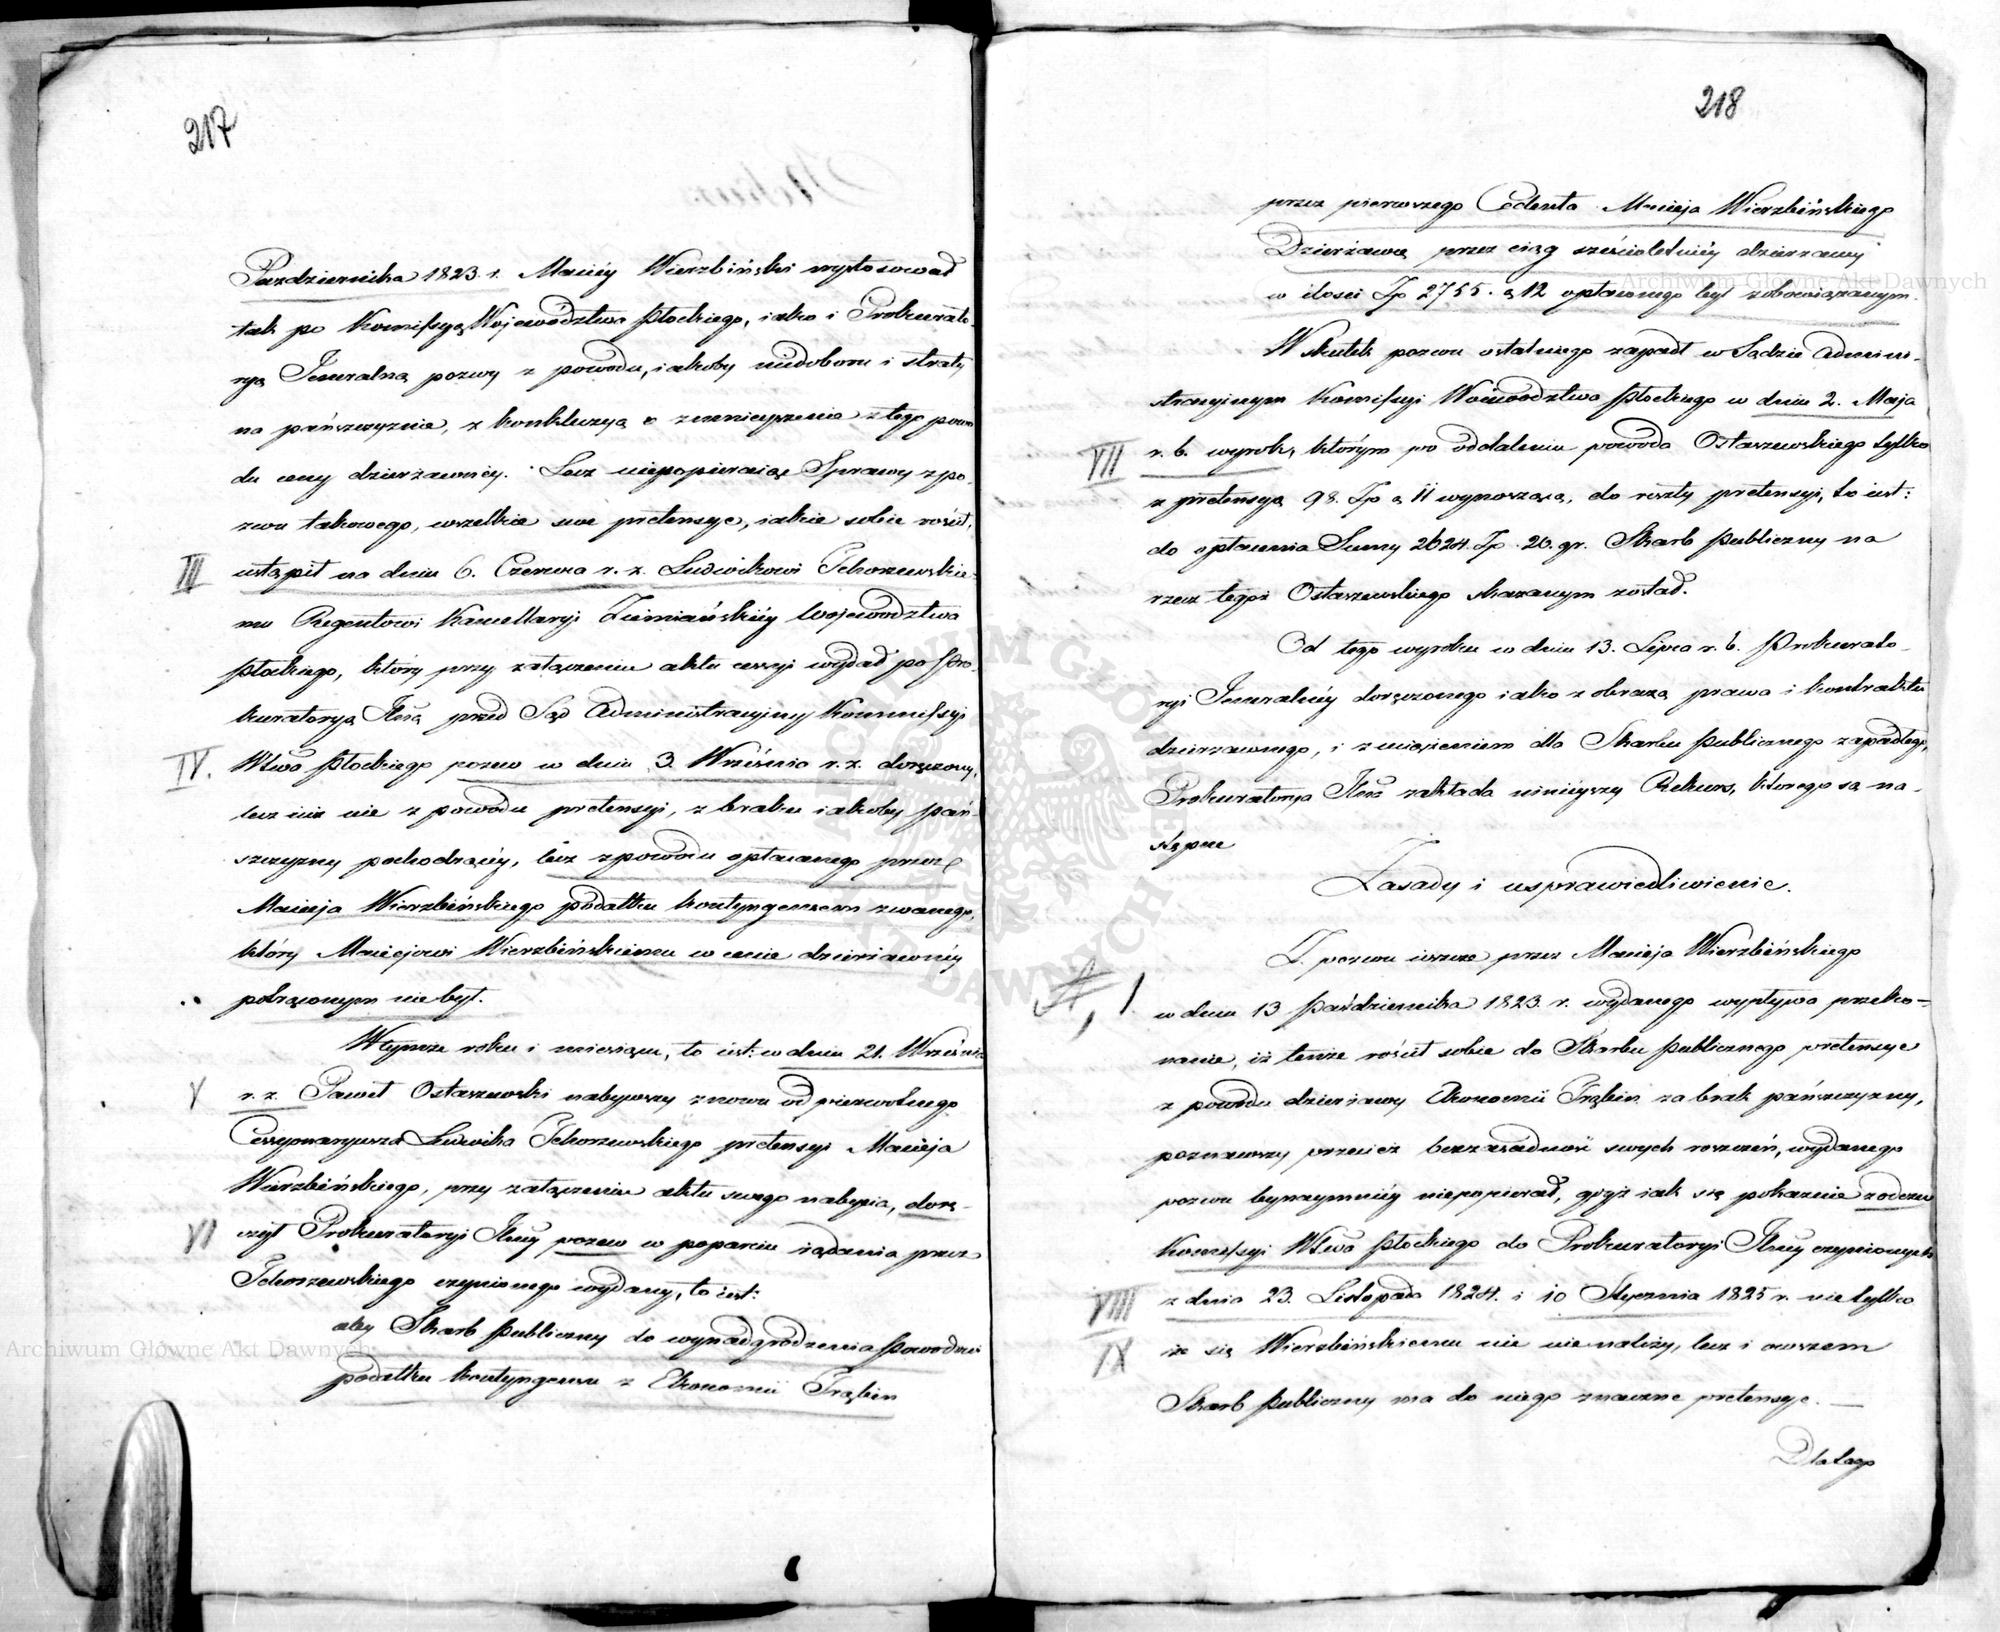 217
Pazdziernika 1823. r. Maciéy Wierzbiński wystosował
tak po Kommissyą Województwa Płockiego, iako i Prokurato-
ryą Jeneralną pozwy z powodu, iakoby niedoboru i straty
na pańszczyznie, z konkluzyą o zmnieyszenie z tego powo
du ceny dzierżawnéy. Lecz niepopieraiąc Sprawy z po-
zwu takowego, wszelkie swe pretensye, iakie sobie rościł,
III ustąpił na dniu 6. Czerwca r. z. Ludwikowi Tchorzewskie-
mu Regentowi Kancellaryi Ziemiańskiéy Województwa
Płockiego, który przy załączeniu aktu cessyi wydał po Pro-
kuratoryą Jlną przed Sąd Administracyjny Kommissyi
IV. Wtwa Płockiego pozew w dniu 3 Września r. z. doręczony,
lecz iuż nie z powodu pretensyi, z braku iakoby pań-
szczyzny pochodzącéy, lecz z powodu opłacanego przez
Macieja Wierzbińskiego podatku kontyngensem zwanego,
który Maciejowi Wierzbińskiemu w cenie dzierżawnéy
potrąconym nie był.
W tymże roku i miesiącu, to iest: w dniu 21. Września
V r. z. Paweł Ostaszewski nabywszy znowu od pierwotnego
Cessyonaryusza Ludwika Tchorzewskiego pretensyi Macieja
Wierzbińskiego, przy załączeniu aktu swego nabycia, dorę-
VI czył Prokuratoryi Jlnéy pozew w poparciu żądania przez
Tchorzewskiego czynionego wydany, to iest:
aby Skarb Publiczny do wynadgrodzenia Powodowi
podatku kontyngensu z Ekonomii Trąbin
218
przez pierwszego Cedenta Macieja Wierzbińskiego
Dzierżawcę przez ciąg sześcioletniéy dzierżawy
w ilości Zp 2755. g 12 opłaconego był zobowiązanym.
W skutek pozwu ostatniego zapadł w Sądzie Admini-
stracyinym Komissyi Woiewództwa Płockiego w dniu 2. Maja
VII r. b. wyrok, którym po oddaleniu powoda Ostaszewskiego tylko
z pretensyą 98. Zp g 11 wynoszącą, do reszty pretensyi, to iest:
do opłacenia Summy 2624. Zp. 20. gr. Skarb Publiczny na
rzecz tegoż Ostaszewskiego skazanym został.
Od tego wyroku w dniu 13. Lipca r. b. Prokurato-
ryi Jeneralnéy doręczonego iako z obrazą prawa i kontraktu
dzierżawnego, i z uciążeniem dla Skarbu Publicznego zapadłego,
Prokuratorya Jlna zakłada ninieyszy Rekurs, którego są na-
stępne
Zasady i usprawiedliwienie.
Z pozwu ieszcze przez Macieja Wierzbińskiego
w dniu 13 Października 1823. r. wydanego wypływa przeko-
nanie, iż tenże rościł sobie do Skarbu Publicznego pretensye
z powodu dzierżawy Ekonomii Trąbin za brak pańszczyzny,
poznawszy przecież bezzasadność swych roszczeń, wydanego
pozwu bynaymniéy niepopierał, gdyż iak się pokazuie z odezw
Komissyi Wtwa Płockiego do Prokuratoryi Jlnéy czynionych
VIII z dnia 23. Listopada 1824. i 10 Stycznia 1825 r. nietylko
IX że się Wierzbińskiemu nic nienależy, lecz i owszem
Skarb Publiczny ma do niego znaczne pretensye. —
Dla tego
Archiwum Główne Akt Dawnych
Archiwum Główne Akt Dawnych
ARCHIWUM GŁÓWNE AKT DAWNYCH